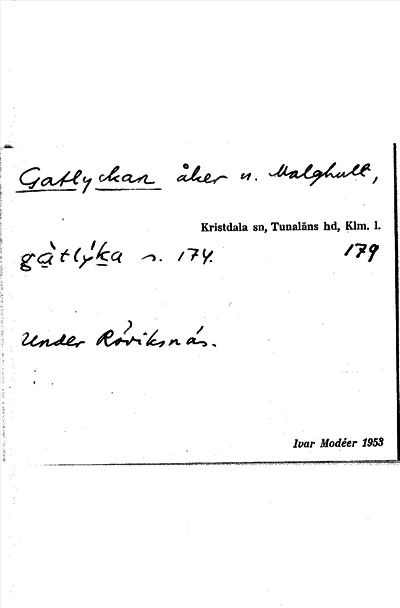 Gatlyckan åker u. Malghult,
Kristdala sn, Tunaläns hd, Klm. l.
gàtlýka s. 174. 179
Under Röviksnäs.
Ivar Modéer 1953